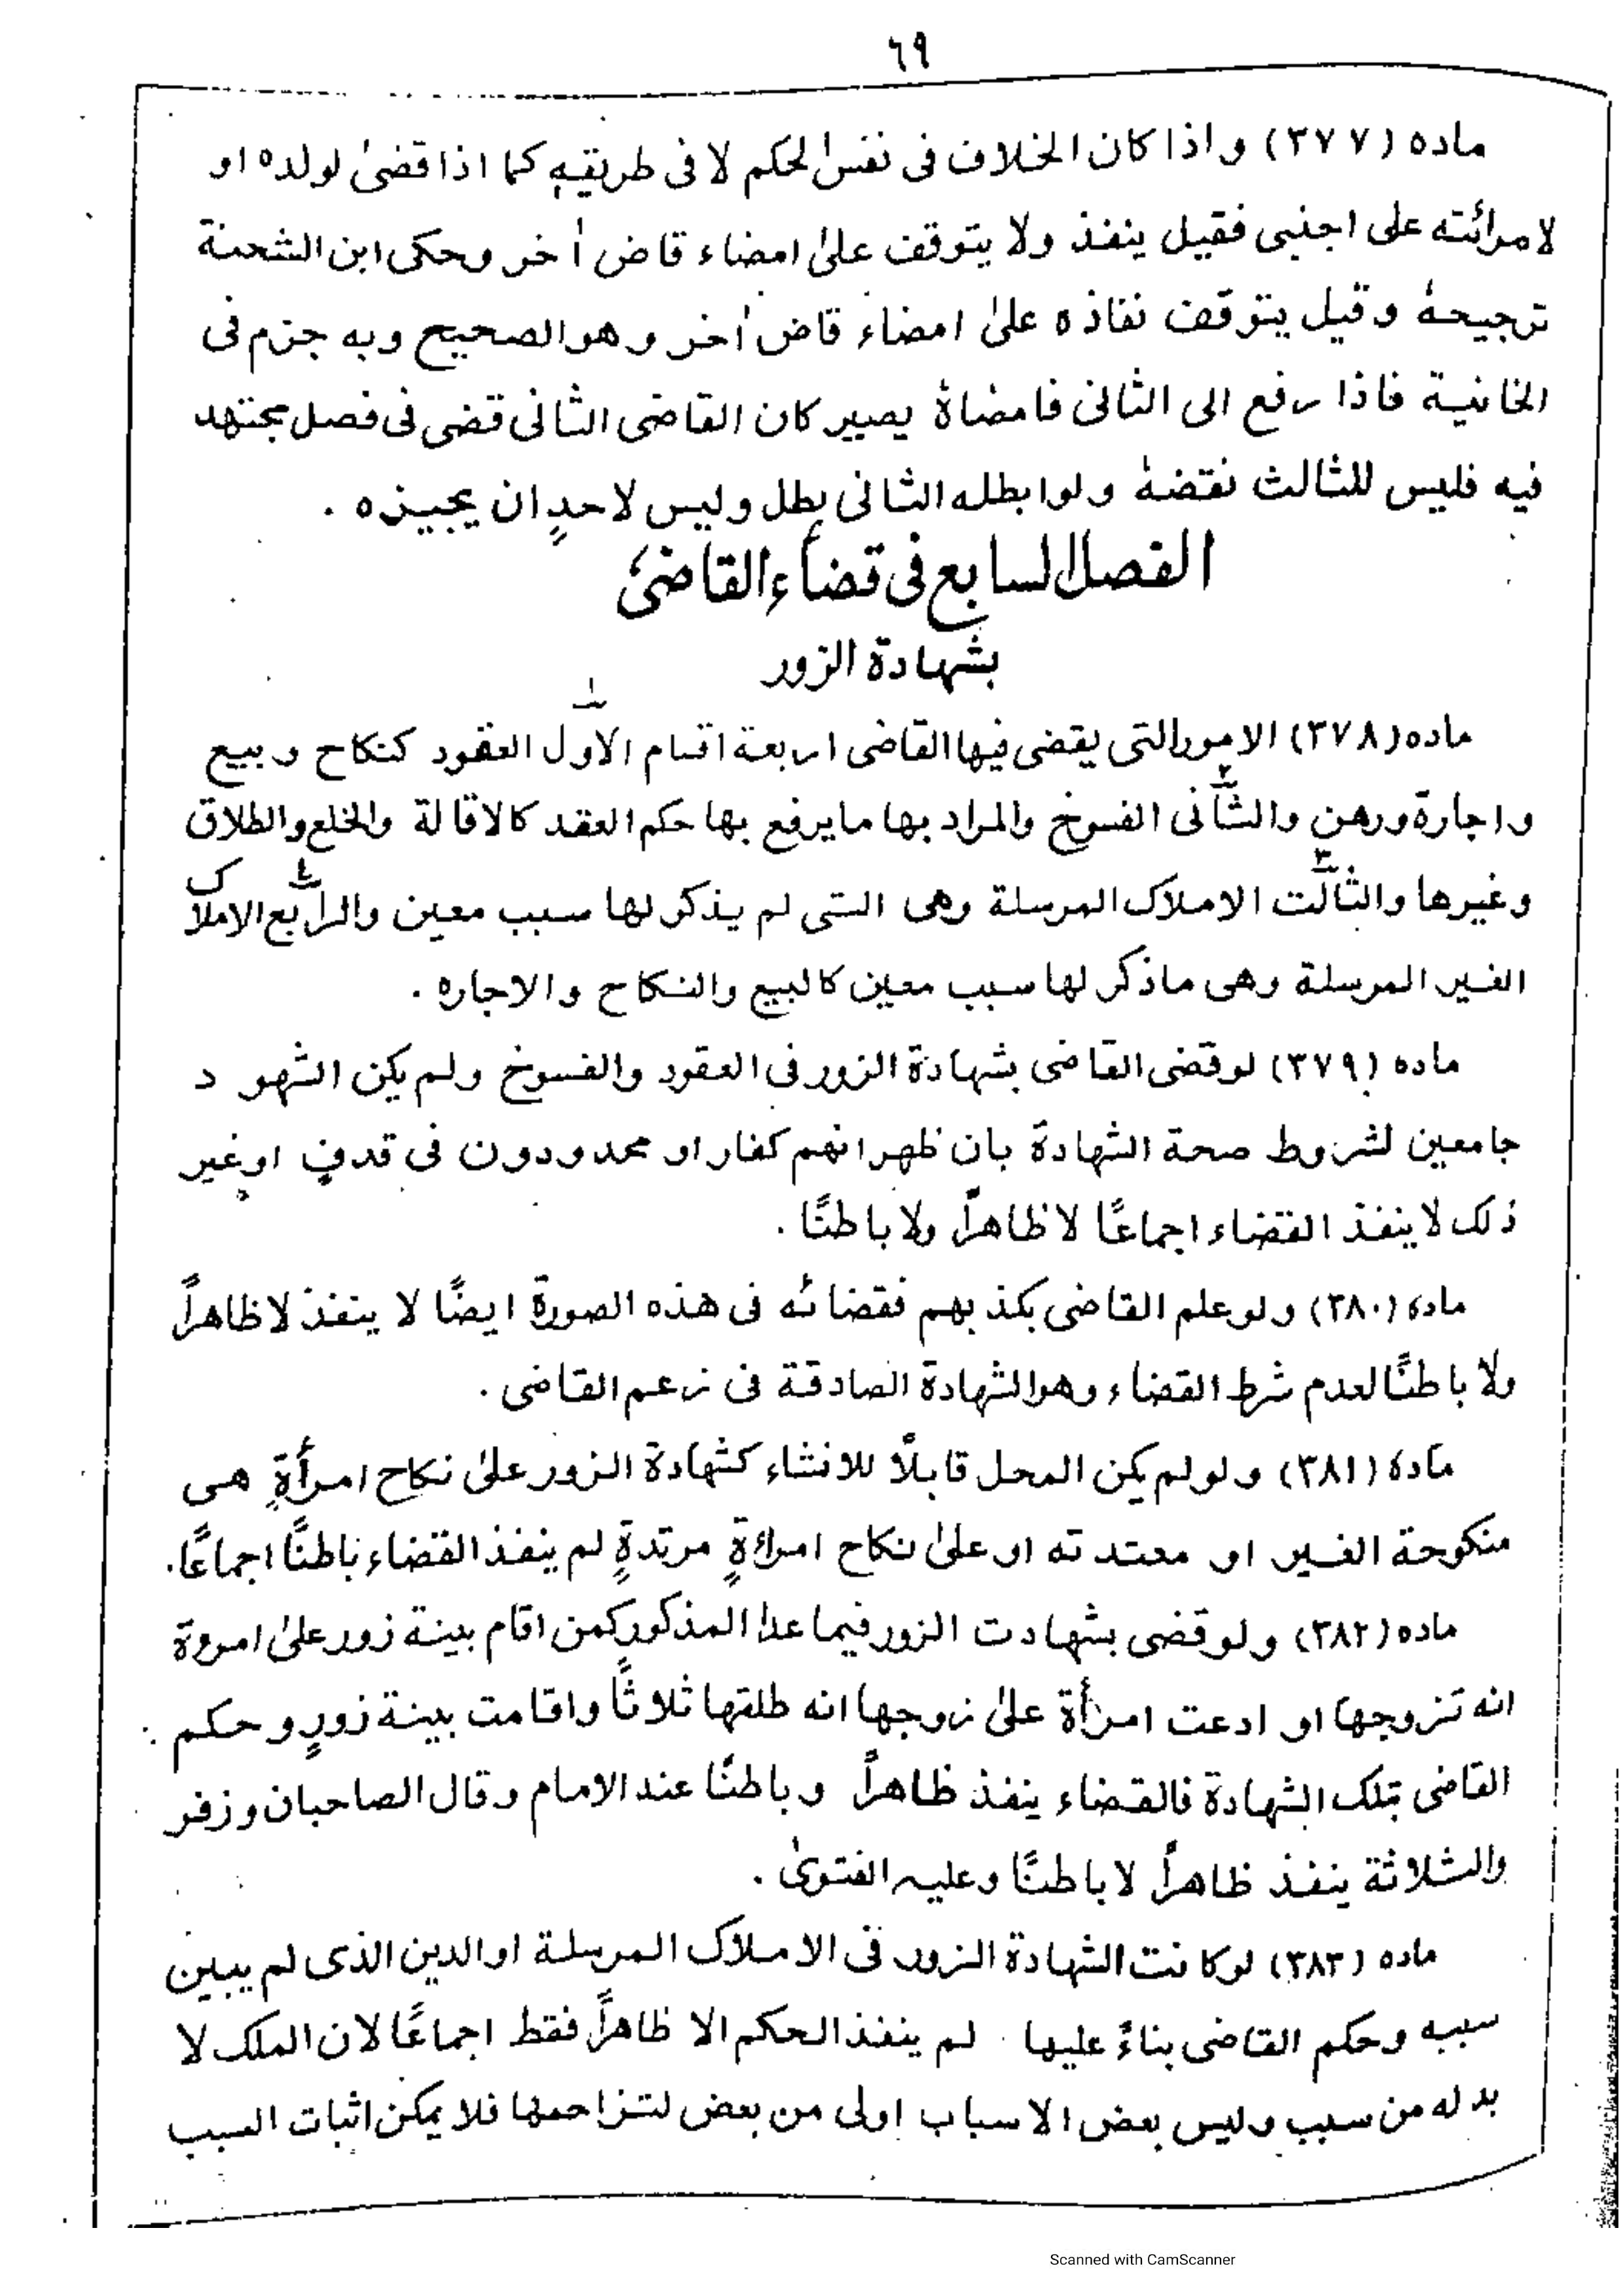 ٦٩
ماده (٣٧٧) واذا كان الخلاف فى نفس الحكم لا فى طريقه كما اذا قضىٰ لولده او
لامرائته على اجنبى فقيل ينفذ ولا يتوقف علىٰ امضاء قاض اٰخر وحكى ابن الشحنة
ترجيحهٗ وقيل يتوقف نفاذه علىٰ امضاء قاض اٰخر وهو الصحيح وبه جزم فى
الخانية فاذا رفع الى الثانى فامضاهٗ يصير كان القاضى الثانى قضى فى فصل مجتهد
فيه فليس للثالث نقضهٗ ولو ابطله الثانى بطل وليس لاحدٍ ان يجيزه .
الفصل السابع فى قضاء القاضى
بشهادة الزور
ماده (٣٧٨) الامور التى يقضى فيها القاضى اربعة اقسام الاول العقود كنكاح وبيع
واجارة ورهن والثانى الفسوخ والمراد بها ما يرفع بها حكم العقد كالاقالة والخلع والطلاق
وغيرها والثالث الاملاك المرسلة وهى التى لم يذكر لها سبب معين والرابع الاملاك
الغير المرسلة وهى ماذكر لها سبب معين كالبيع والنكاح والاجاره .
ماده (٣٧٩) لو قضى القاضى بشهادة الزور فى العقود والفسوخ ولم يكن الشهود
جامعين لشروط صحة الشهادة بان ظهر انهم كفار او محدودون فى قذفٍ او غير
ذلك لا ينفذ القضاء اجماعًا لا ظاهراً ولا باطنًا .
مادة (٣٨٠) ولو علم القاضى بكذبهم فقضائه فى هذه الصورة ايضًا لا ينفذ لا ظاهراً
ولا باطنًا لعدم شرط القضاء وهو الشهادة الصادقة فى زعم القاضى .
مادة (٣٨١) ولو لم يكن المحل قابلًا للانشاء كشهادة الزور علىٰ نكاح امرأةٍ هى
منكوحة الغير او معتدته او علىٰ نكاح امرائةٍ مرتدةٍ لم ينفذ القضاء باطنًا اجماعًا.
ماده (٣٨٢) ولو قضى بشهادت الزور فيما عدا المذكور كمن اقام بينة زور علىٰ امروة
انه تزوجها او ادعت امرأة علىٰ زوجها انه طلقها ثلاثًا واقامت بينة زورٍ وحكم
القاضى بتلك الشهادة فالقضاء ينفذ ظاهراً وباطنًا عند الامام وقال الصاحبان وزفر
والثلاثة ينفذ ظاهراً لا باطنًا وعليه الفتوىٰ .
ماده (٣٨٣) لو كانت الشهادة الزور فى الاملاك المرسلة او الدين الذى لم يبين
سببه وحكم القاضى بناءً عليها لم ينفذ الحكم الا ظاهراً فقط اجماعًا لان الملك لا
بد له من سبب وليس بعض الاسباب اولى من بعض لتزاحمها فلا يمكن اثبات السبب
Scanned with CamScanner